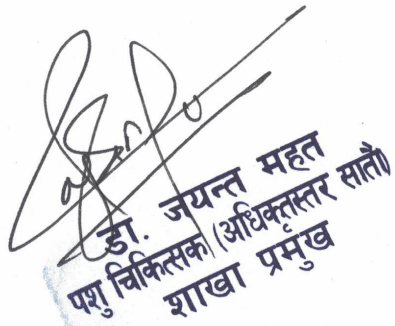 डा. जयन्त महत
पशु चिकित्सक (अधिकृतस्तर सातौं)
शाखा प्रमुख